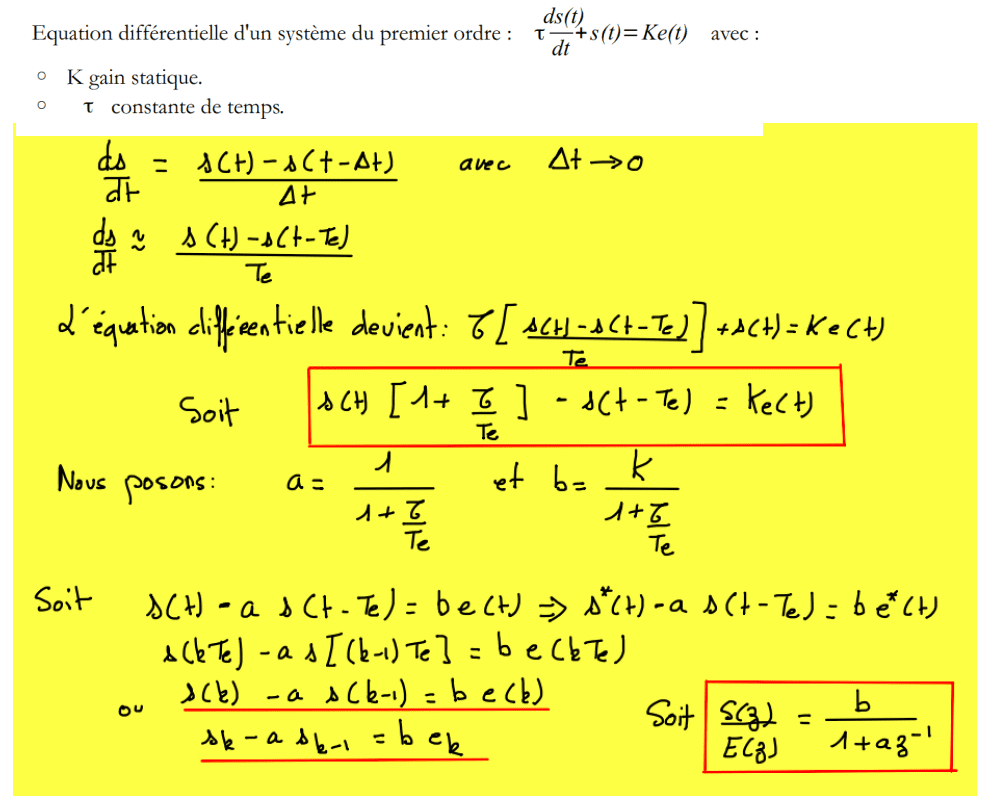 Equation différentielle d'un système du premier ordre : τ ds(t)/dt + s(t)=Ke(t) avec :
○ K gain statique.
○ τ constante de temps.
ds/dt = (s(t) - s(t-Δt))/Δt avec Δt → 0
ds/dt ≈ (s(t) - s(t-Te))/Te
L'équation différentielle devient: τ[(s(t) - s(t-Te))/Te] + s(t) = Ke(t)
Soit s(t) [1 + τ/Te] - s(t-Te) = Ke(t)
Nous posons: a = 1/(1 + τ/Te) et b = k/(1 + τ/Te)
Soit s(t) - a s(t-Te) = b e(t) ⇒ s*(t) - a s(t-Te) = b e*(t)
s(kTe) - a s[(k-1)Te] = b e(kTe)
ou s(k) - a s(k-1) = b e(k)
sk - a sk-1 = b ek
Soit S(z)/E(z) = b/(1 + az⁻¹)